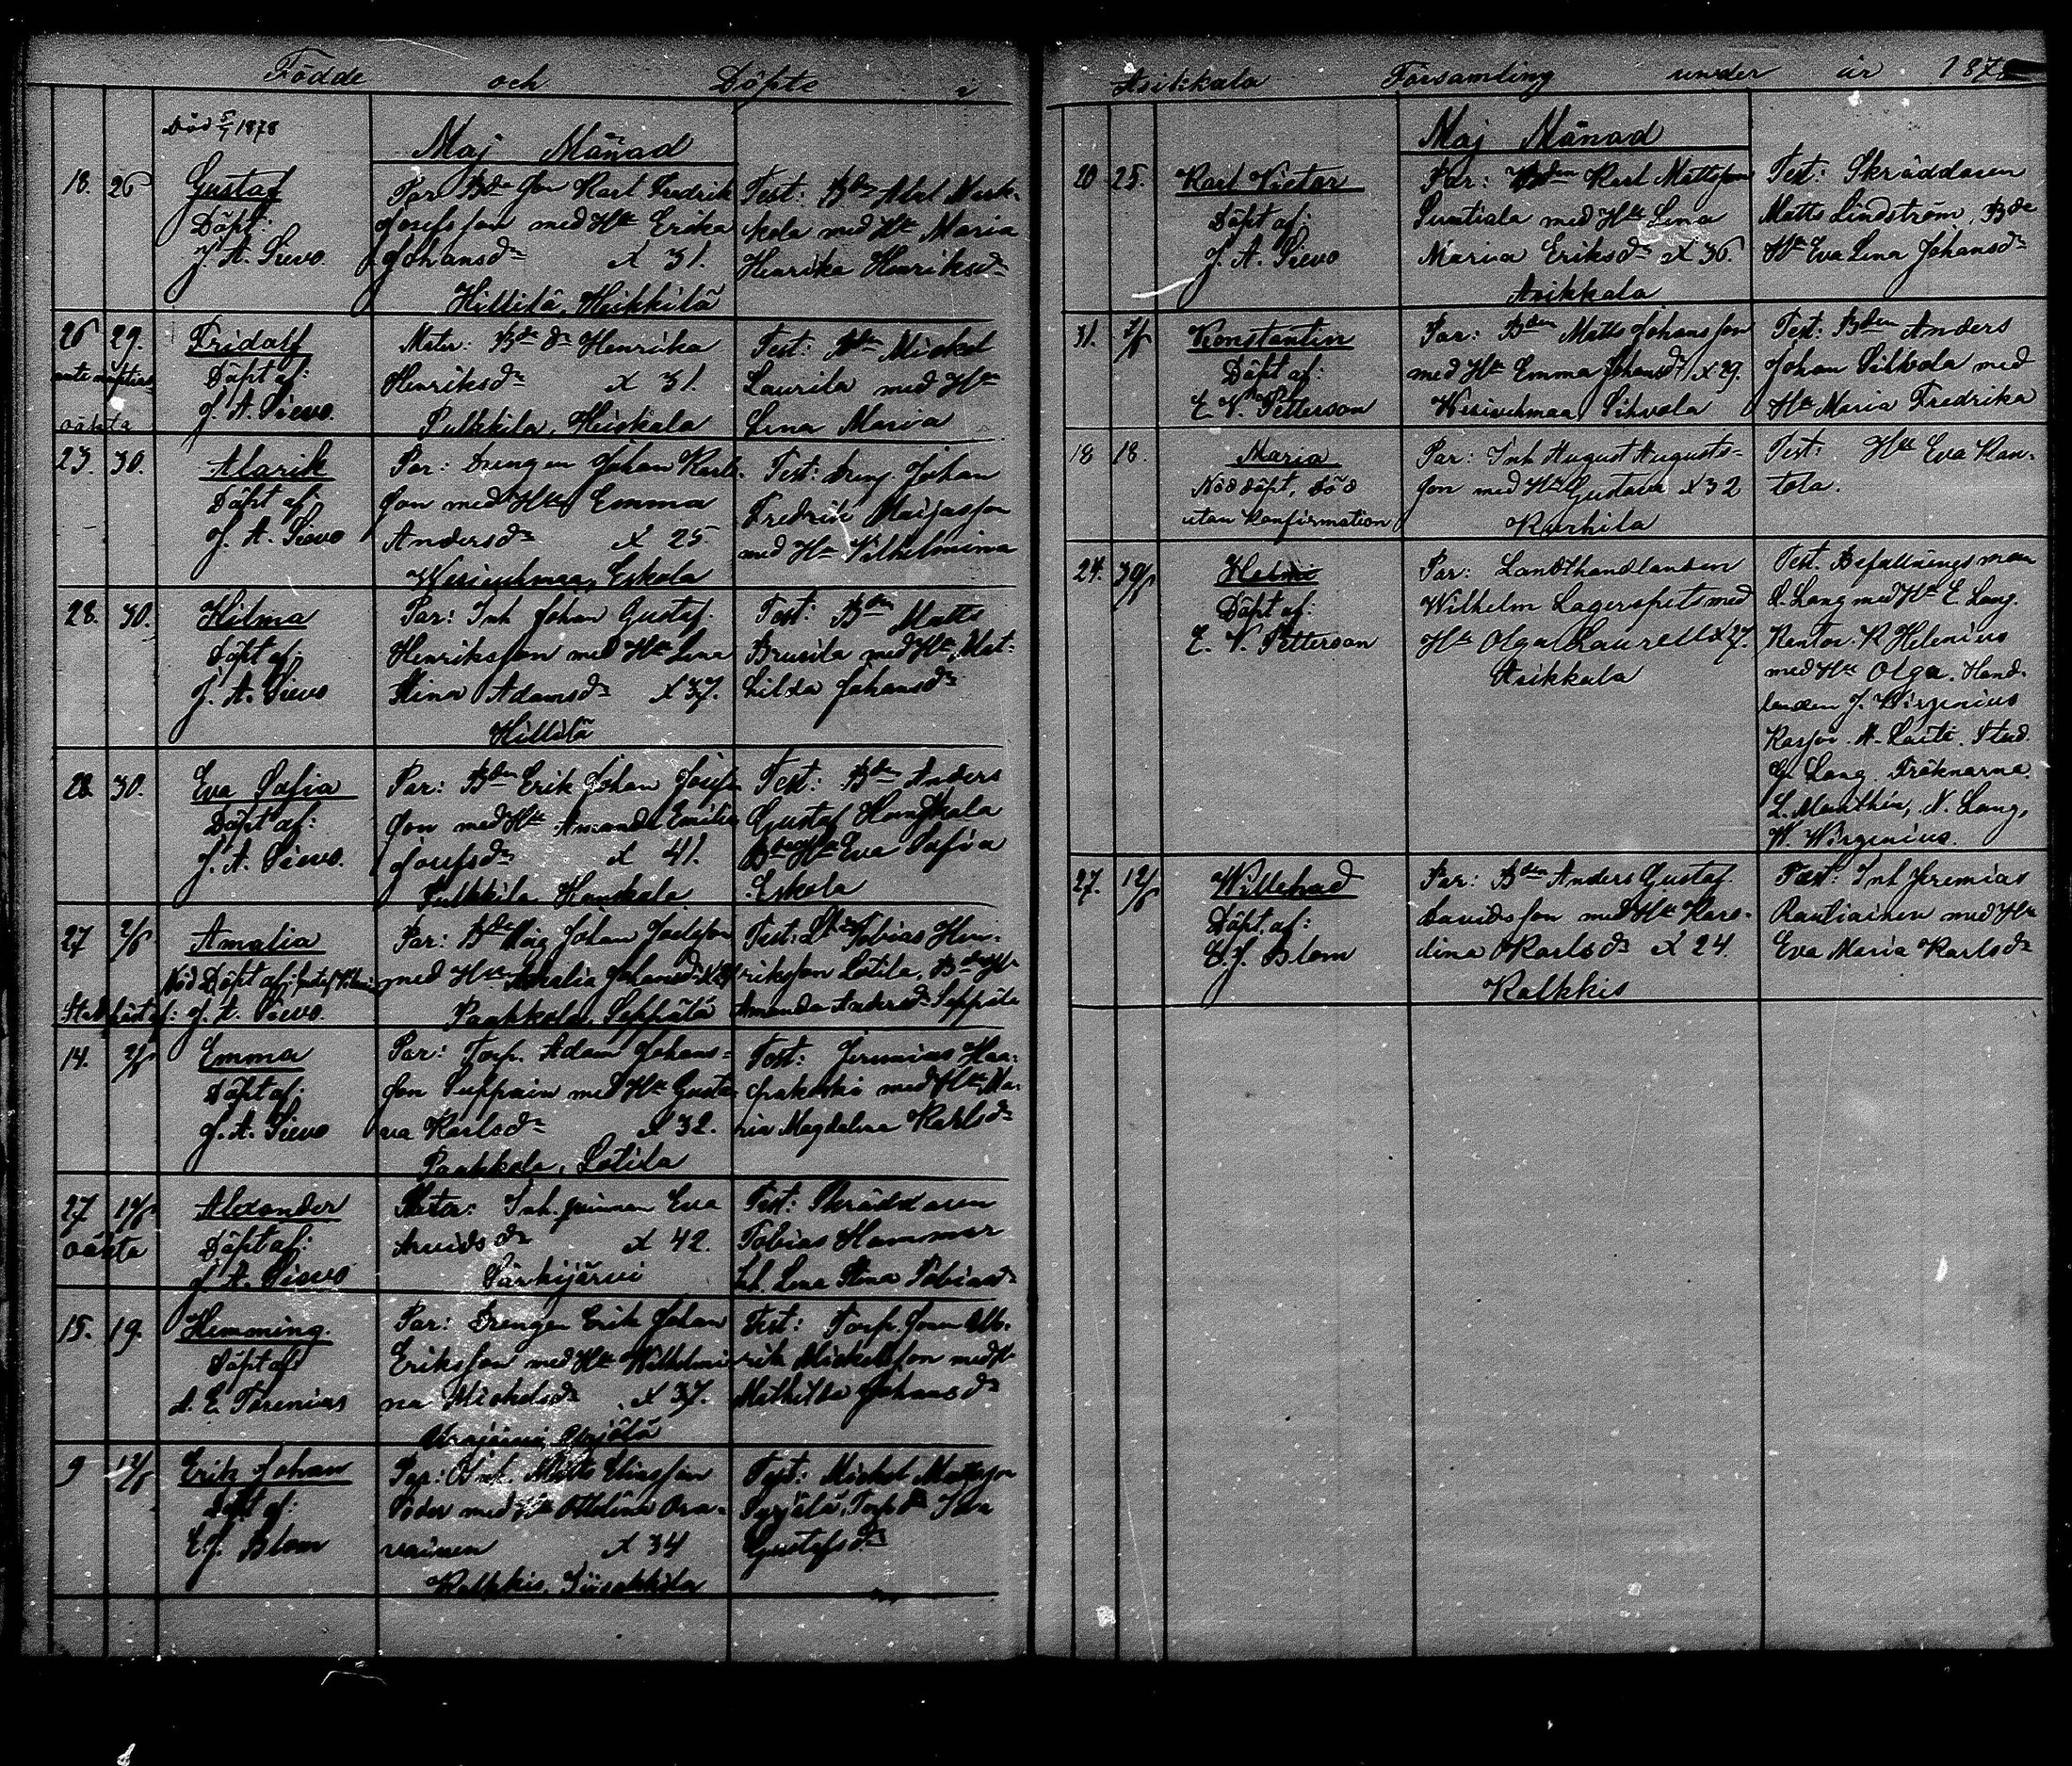 Födde och Döpte i
Död 5/7 1878
Maj Månad
18. 26
Gustaf
Döpt:
J. A. Sievo.
Par Bde Son Karl Fredrik
Josefsson med Hu Erika
Johansdr x 31.
Hillilä, Heikkilä
Test: Bden Abel
med Hu Maria
Henrika Henriksdr
26 29.
oäkta
Fridolf
Döpt af:
J. A. Sievo.
Mater: Bde dr Henrika
Henriksdr x 31.
Pulkkila, Heiskala
Test: Bden Mickel
Laurila med Hu
Lena Maria
23. 30.
Alarik
Döpt af:
J. A. Sievo
Par: Drengen Johan Karls-
son med Hu Emma
Andersdr x 25.
Wesivehmaa, Eskola
Test: Dreng. Johan
Fredrik
med Hu Vilhelmina
28. 30.
Hilma
Döpt af:
J. A. Sievo
Par: Inh Johan Gustaf.
Henriksson med Hu Lena
Stina Adamsdr x 37.
Hillilä
Test: Bden Matts
Brusila med Hu Mat-
hilda Johansdr
28. 30.
Eva Sofia
Döpt af:
J. A. Sievo.
Par: Bden Erik Johan Josefs-
son med Hu Amanda Emilia
Josefsdr x 41.
Pulkkila Hankala.
Test: Bden Anders
Gustaf
Eva Sofia
Eskola
27 2/6
Amalia
Nöd Döpt af:
J. A. Sievo.
Par: Bde Måg Johan Joelsson
med Hu Amalia Johansdr
Paakkola, Seppälä
Test: Tobias Hen-
riksson Lötila,
Amanda Andersdr Seppälä
14. 2/6
Emma
Döpt af:
J. A. Sievo
Par: Torp. Adam Johans-
son med Hu Gusta-
va Karlsdr x 32.
Paakkola, Lötila
Test: Jeremias Haa-
pakoski med Hu Ma-
ria Magdalena Karlsdr
27
oäkta
Alexander
Döpt af:
J. A. Sievo
Mater: Inh. qvinnan Eva
Arvidsdr x 42.
Särkijärvi
Test: Skräddaren
Tobias Hammar
Inh. Lena Stina Tobiasdr
15. 19.
Hemming.
Döpt af
A. E. Torenius
Par: Drengen Erik Johan
Eriksson med Hu Wilhelmi-
na Mickelsdr x 37.
Urajärvi,
Test: Torp. Sonen Ulb-
rik Mickelsson med Hu
Mathilda Johansdr
9 12/6
Erik Johan
Döpt af:
E. J. Blom
Par: Inh. Matts Eliasson
Söder med Hu Ottilina Ora-
vainen x 34
Kalkkis, Iisakkila
Test: Mickel Mattsson
Syrjälä, Torp dr Ida
Gustafsdr
Asikkala Församling under år 1878
Maj Månad
20 25.
Karl Victor
Döpt af:
J. A. Sievo
Par: Bden Karl Mattsson
Suutiala med Hu Lena
Maria Eriksdr x 36.
Asikkala
Test: Skräddaren
Matts Lindström, Bde
Hu Eva Lena Johansdr
31. 2/6
Konstantin
Döpt af:
E. V. Petterson
Par: Bden Matts Johansson
med Hu Emma Johansdr x 29.
Wesivehmaa, Sihvola
Test: Bden Anders
Johan Sihvola med
Hu Maria Fredrika
18 18.
Maria
Nöddöpt, död
utan konfirmation
Par: Inh August Augusts-
son med Hu Gustava x 32
Kurhila
Test: Hu Eva Kan-
tola.
24. 30/6
Helmi
Döpt af:
E. V. Petterson
Par: Landthandlanden
Wilhelm Lagerspets med
Hu Olga Laurell x 27.
Asikkala
Test. Befallningsman
L. Lang med Hu E. Lang.
Kantor. K Helenius
med Hu Olga. Hand-
landen J. Wirzenius
Stud.
G. Lang. Fröknarna
L. Manthén, N. Lang,
W. Wirzenius.
27. 12/6
Willehad
Döpt af:
E. J. Blom
Par: Bden Anders Gustaf
Davidsson med Hu Karo-
lina Karlsdr x 24.
Kalkkis
Test: Inh Jeremias
Rautiainen med Hu
Eva Maria Karlsdr